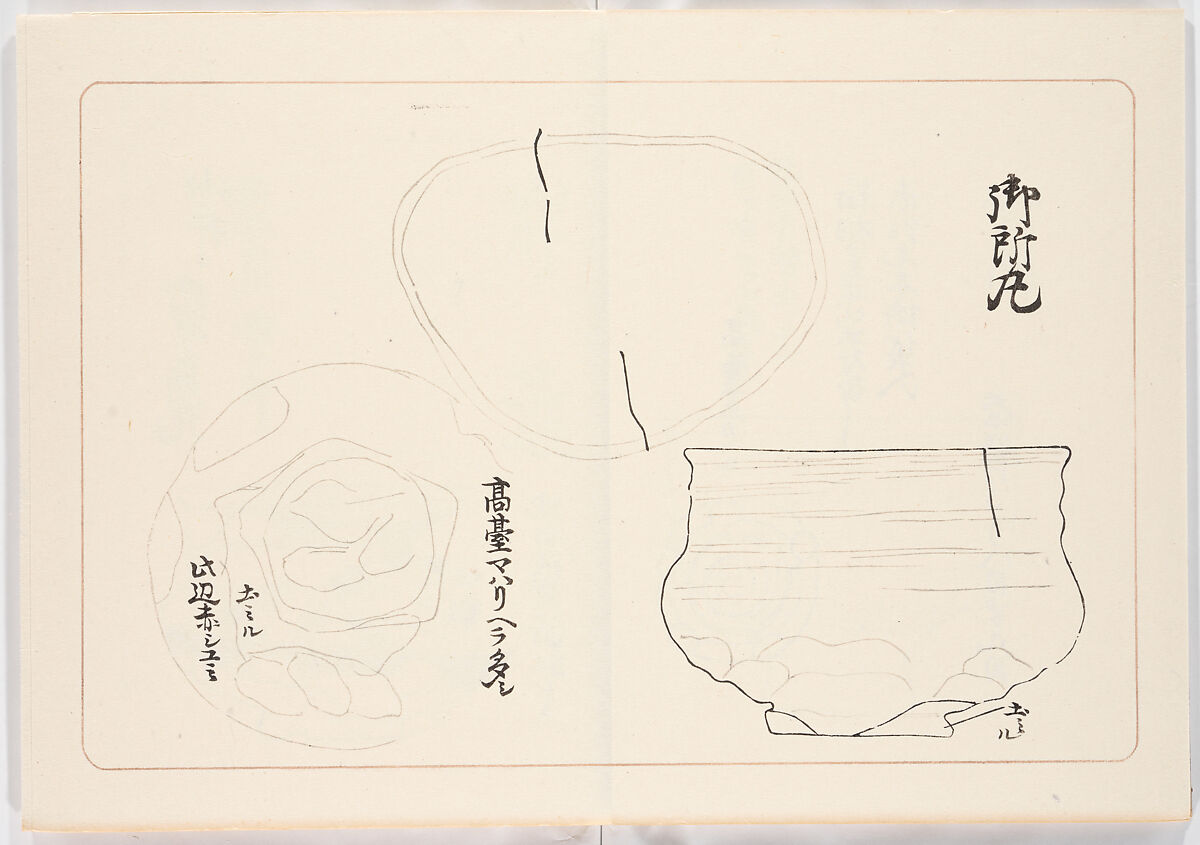 御所丸
土ミル
高臺マハリヘラ多シ
土ミル
此辺赤シユミ